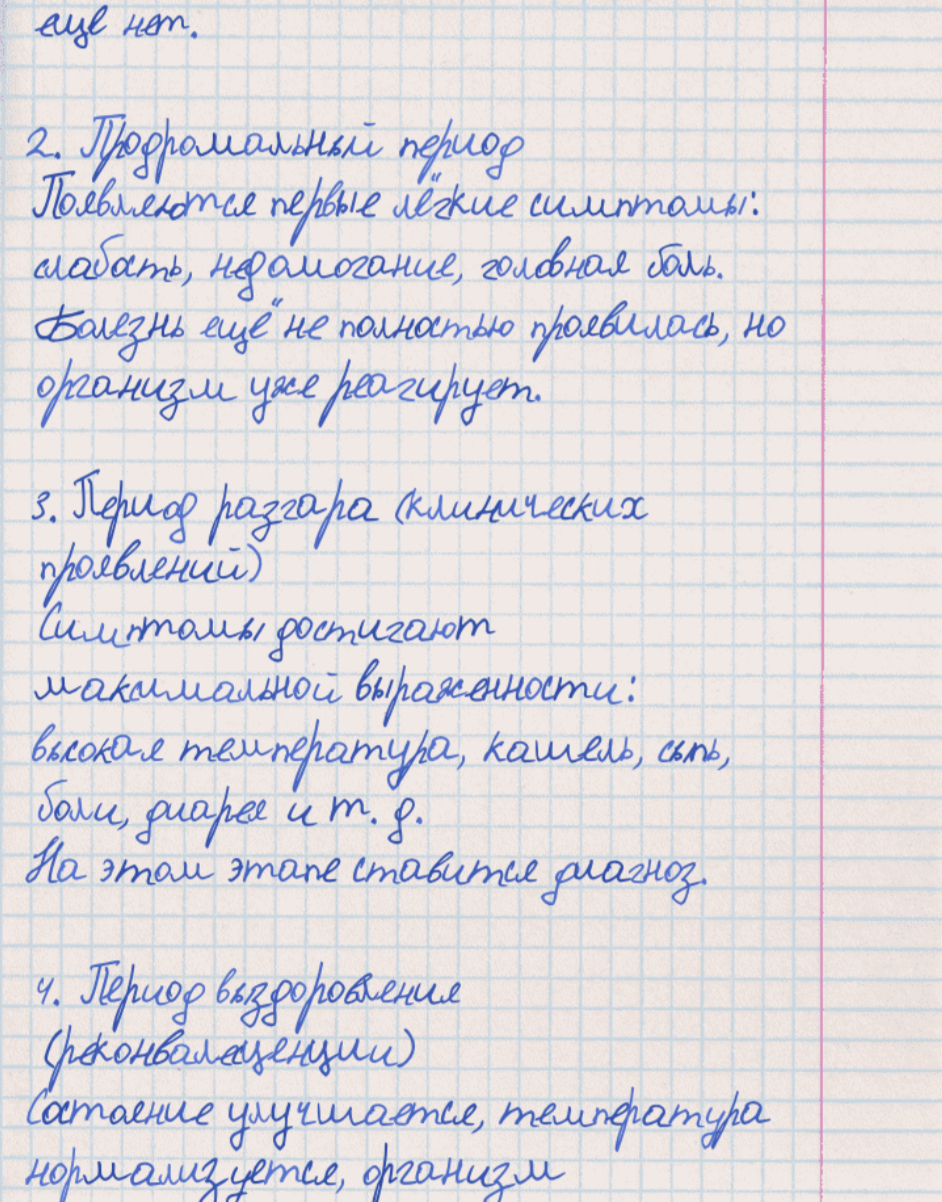 еще нет.
2. Продромальный период
Появляются первые лёгкие симптомы:
слабость, недомогание, головная боль.
Болезнь ещё не полностью проявилась, но
организм уже реагирует.
3. Период разгара (клинических
проявлений)
Симптомы достигают
максимальной выраженности:
высокая температура, кашель, сыпь,
боли, диарея и т. д.
На этом этапе ставится диагноз.
4. Период выздоровления
(реконвалесценции)
Состояние улучшается, температура
нормализуется, организм